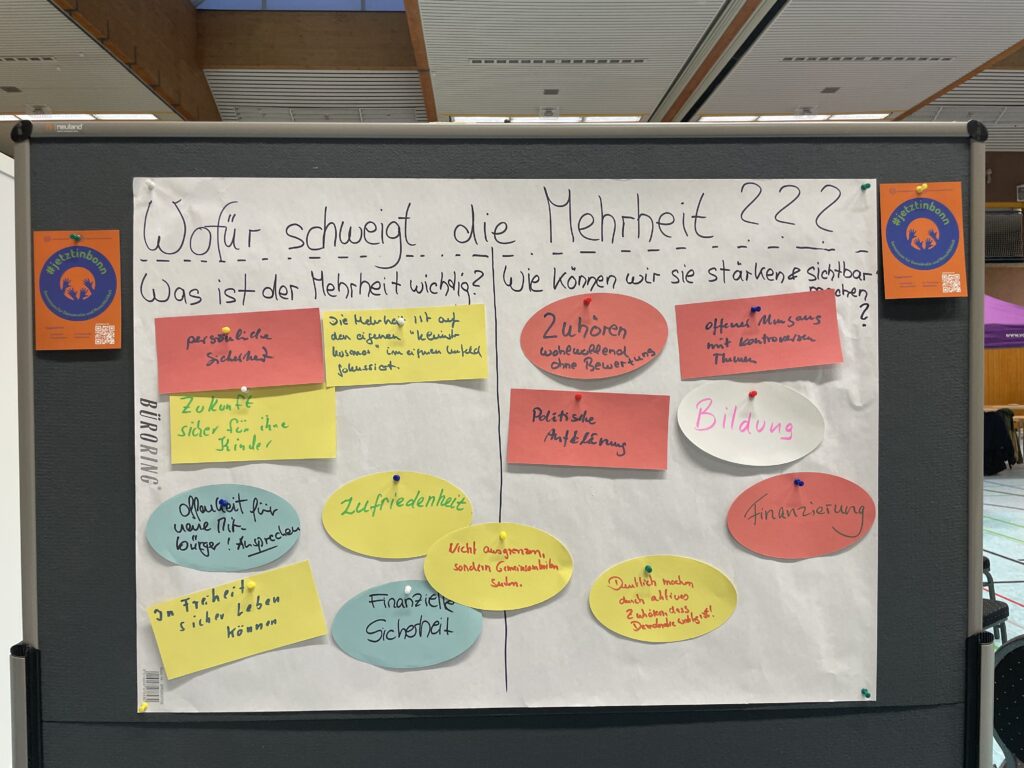 neuland
Wofür schweigt die Mehrheit ???
Was ist der Mehrheit wichtig?
persönliche
Sicherheit
Die Mehrheit ist auf
den eigenen
im eigenen Umfeld
fokussiert.
Zukunft
sicher für ihre
Kinder
BÜRORING
Offenheit für
neue Mit-
bürger! Ansprechen
Zufriedenheit
In Freiheit
sicher Leben
können
Finanzielle
Sicherheit
Nicht ausgrenzen,
sondern Gemeinsamkeiten
suchen.
Wie können wir sie stärken & sichtbar
machen
?
Zuhören
wohlwollend
ohne Bewertung
offener Umgang
mit kontroversen
Themen
Politische
Aufklärung
Bildung
Finanzierung
Deutlich machen
durch aktives
Zuhören, dass
Demokratie
#jetztinbonn
#jetztinbonn